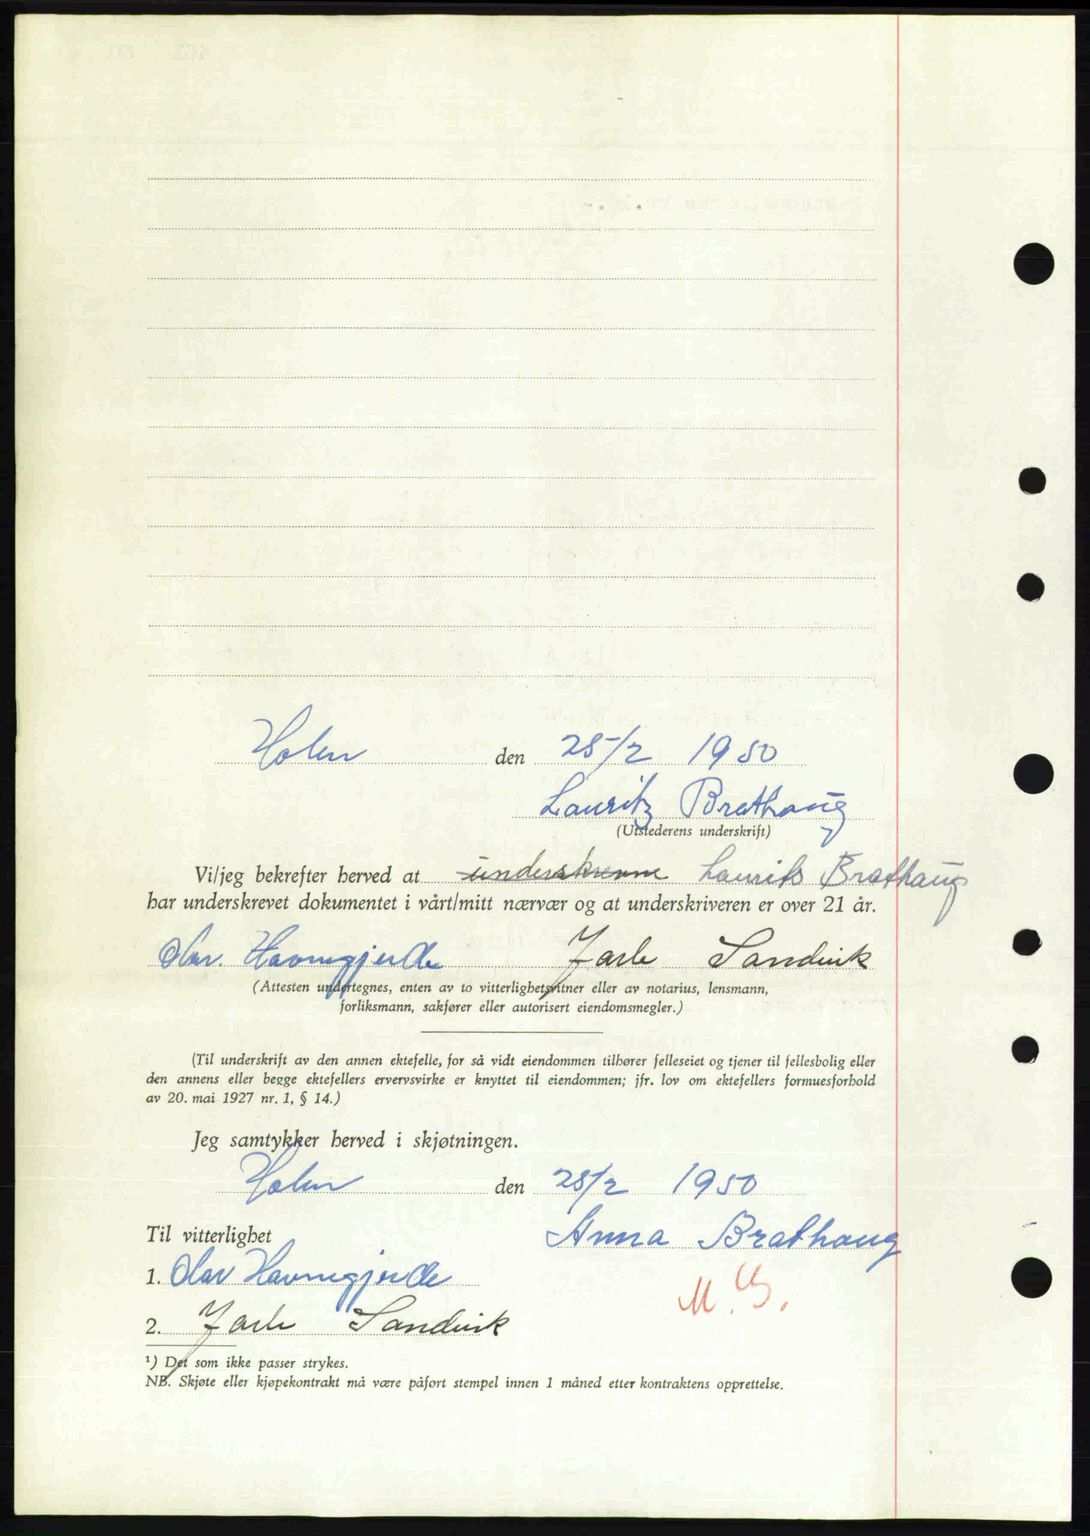 Holen den 25/2 1950
Lauritz Brathaug
(Utstederens underskrift)
Vi/jeg bekrefter herved at Laurits Brathaug
har underskrevet dokumentet i vårt/mitt nærvær og at underskriveren er over 21 år.
Olav Havnegjerde Jarle Sandvik
(Attesten undertegnes, enten av to vitterlighetsvitner eller av notarius, lensmann,
forliksmann, sakfører eller autorisert eiendomsmegler.)
(Til underskrift av den annen ektefelle, for så vidt eiendommen tilhører felleseiet og tjener til fellesbolig eller
den annens eller begge ektefellers ervervsvirke er knyttet til eiendommen; jfr. lov om ektefellers formuesforhold
av 20. mai 1927 nr. 1, § 14.)
Jeg samtykker herved i skjøtningen.
Holen den 25/2 1950
Til vitterlighet Anna Brathaug
1. Olav Havnegjerde
2. Jarle Sandvik
¹) Det som ikke passer strykes.
NB. Skjøte eller kjøpekontrakt må være påført stempel innen 1 måned etter kontraktens opprettelse.